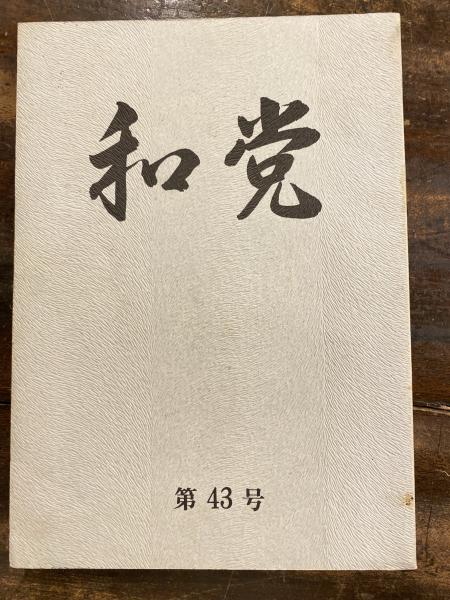 和党
第 43 号